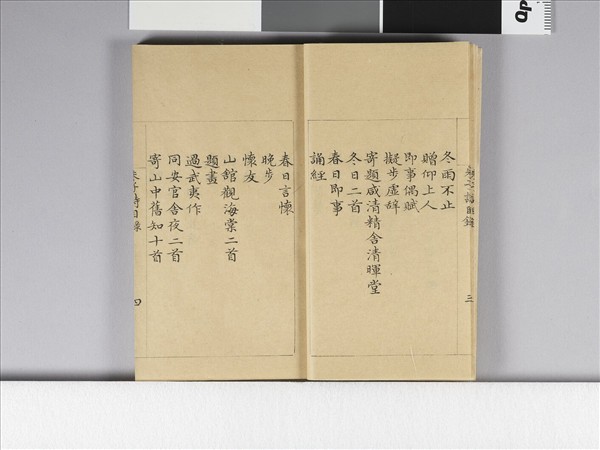 冬雨不止
贈仰上人
即事偶賦
擬步虛辭
寄題咸清精舍清暉堂
冬日二首
春日即事
誦經
三
春日言懷
晚步
懷友
山館觀海棠二首
題畫
過武夷作
同安官舍夜二首
寄山中舊知十首
朱子詩目錄
四